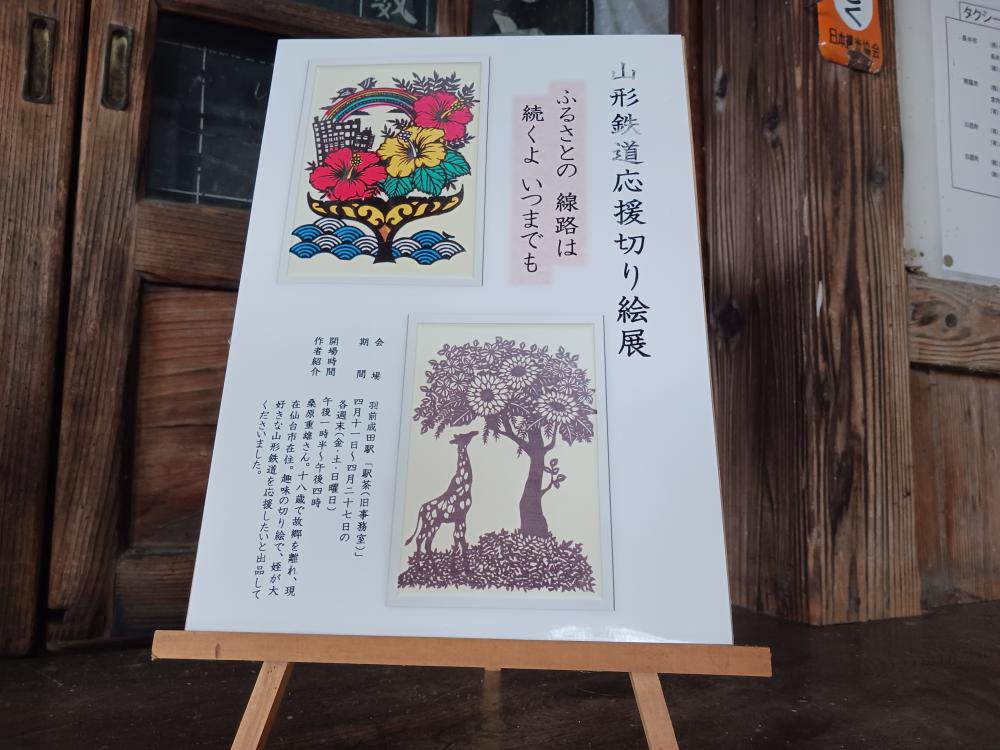 山形鉄道応援切り絵展
ふるさとの 線路は
続くよ いつまでも
会場 羽前成田駅「駅茶(旧事務室)」
期間 四月十一日~四月二十七日の
各週末(金・土・日曜日)
開場時間 午後一時半~午後四時
作者紹介 桑原重雄さん。十八歳で故郷を離れ、現
在仙台市在住。趣味の切り絵で、姪が大
好きな山形鉄道を応援したいと出品して
くださいました。
日本観光協会
タクシー
長井市
南陽市
川西町
白鷹町